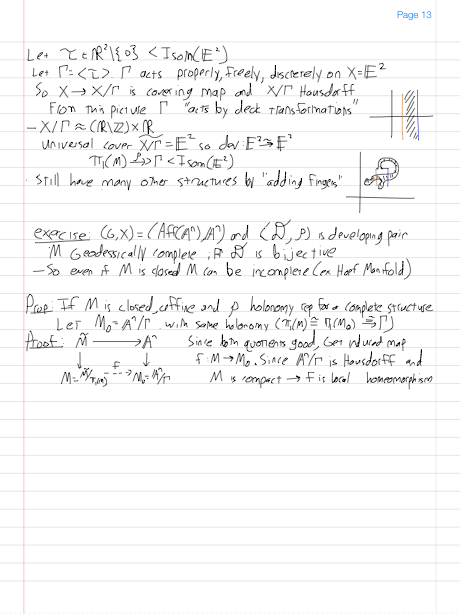 Page 13
Let τ ∈ ℝ²\{0} < Isom(𝔼²)
Let Γ = <τ>. Γ acts properly, freely, discretely on X = 𝔼²
So X → X/Γ is covering map and X/Γ Hausdorff
From this picture Γ "acts by deck transformations"
– X/Γ ≈ (ℝ/ℤ) × ℝ
Universal cover X/Γ = 𝔼² so dev: 𝔼² ≅ 𝔼²
π₁(M) →ρ Γ < Isom(𝔼²)
· Still have many other structures by "adding fingers"
exercise: (G,X) = (Aff(𝔸ⁿ), 𝔸ⁿ) and (D, ρ) is developing pair
M Geodessically complete iff D is bijective
– So even if M is closed M can be incomplete (ex Hopf Manifold)
Prop: If M is closed, affine and ρ holonomy rep for a complete structure
Let M₀ = 𝔸ⁿ/Γ with same holonomy (π₁(M) ≅ π₁(M₀) ≅ Γ)
Proof: M̃ → 𝔸ⁿ Since both quotients good, Get induced map
↓ f ↓ f: M → M₀. Since 𝔸ⁿ/Γ is Hausdorff and
M = M̃/π₁(M) --→ M₀ = 𝔸ⁿ/Γ M is compact → f is local homeomorphism